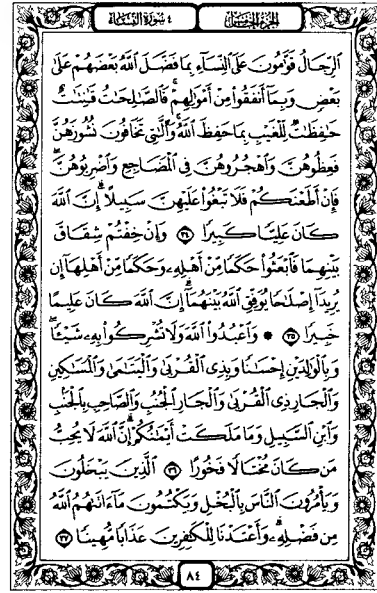 ٤ سورة النساء
الجزء الخامس
ٱلرِّجَالُ قَوَّٰمُونَ عَلَى ٱلنِّسَآءِ بِمَا فَضَّلَ ٱللَّهُ بَعْضَهُمْ عَلَىٰ
بَعْضٍ وَبِمَآ أَنفَقُوا۟ مِنْ أَمْوَٰلِهِمْ ۚ فَٱلصَّٰلِحَٰتُ قَٰنِتَٰتٌ
حَٰفِظَٰتٌ لِّلْغَيْبِ بِمَا حَفِظَ ٱللَّهُ ۚ وَٱلَّٰتِى تَخَافُونَ نُشُوزَهُنَّ
فَعِظُوهُنَّ وَٱهْجُرُوهُنَّ فِى ٱلْمَضَاجِعِ وَٱضْرِبُوهُنَّ ۖ
فَإِنْ أَطَعْنَكُمْ فَلَا تَبْغُوا۟ عَلَيْهِنَّ سَبِيلًا ۗ إِنَّ ٱللَّهَ
كَانَ عَلِيًّا كَبِيرًا ٣٤ وَإِنْ خِفْتُمْ شِقَاقَ
بَيْنِهِمَا فَٱبْعَثُوا۟ حَكَمًا مِّنْ أَهْلِهِۦ وَحَكَمًا مِّنْ أَهْلِهَآ إِن
يُرِيدَآ إِصْلَٰحًا يُوَفِّقِ ٱللَّهُ بَيْنَهُمَآ ۗ إِنَّ ٱللَّهَ كَانَ عَلِيمًا
خَبِيرًا ٣٥ * وَٱعْبُدُوا۟ ٱللَّهَ وَلَا تُشْرِكُوا۟ بِهِۦ شَيْـًٔا ۖ
وَبِٱلْوَٰلِدَيْنِ إِحْسَٰنًا وَبِذِى ٱلْقُرْبَىٰ وَٱلْيَتَٰمَىٰ وَٱلْمَسَٰكِينِ
وَٱلْجَارِ ذِى ٱلْقُرْبَىٰ وَٱلْجَارِ ٱلْجُنُبِ وَٱلصَّاحِبِ بِٱلْجَنۢبِ
وَٱبْنِ ٱلسَّبِيلِ وَمَا مَلَكَتْ أَيْمَٰنُكُمْ ۗ إِنَّ ٱللَّهَ لَا يُحِبُّ
مَن كَانَ مُخْتَالًا فَخُورًا ٣٦ ٱلَّذِينَ يَبْخَلُونَ
وَيَأْمُرُونَ ٱلنَّاسَ بِٱلْبُخْلِ وَيَكْتُمُونَ مَآ ءَاتَىٰهُمُ ٱللَّهُ
مِن فَضْلِهِۦ ۗ وَأَعْتَدْنَا لِلْكَٰفِرِينَ عَذَابًا مُّهِينًا ٣٧
٨٤